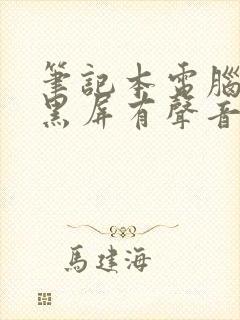 筆記本電腦
黑屏有聲音
馬建海